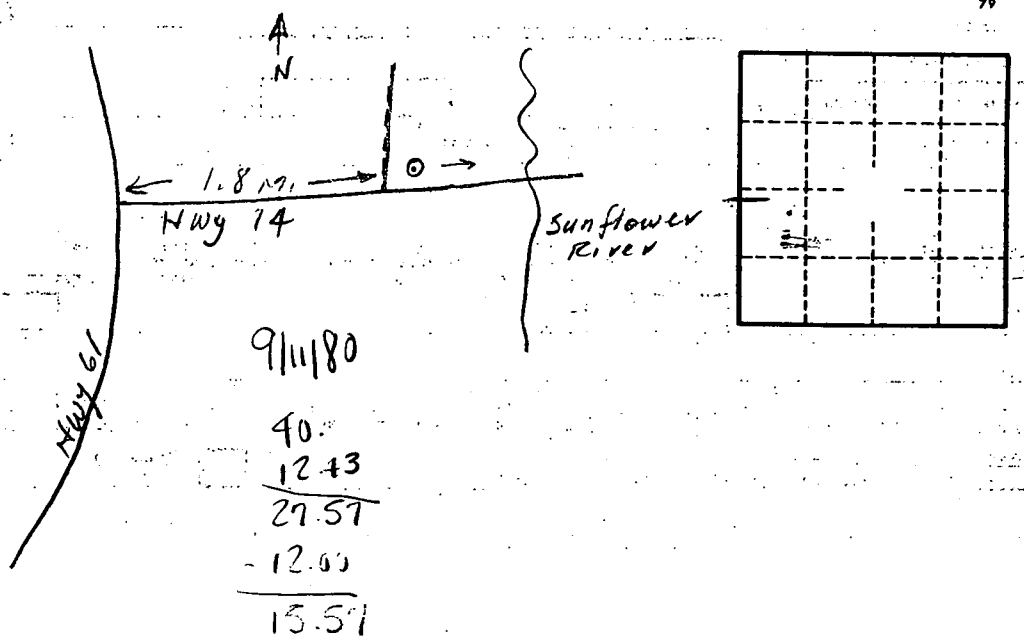 79
N
1.8 m.
Hwy 14
Sunflower
River
Hwy 61
9/11/80
40.
12.43
27.57
- 12.00
15.57